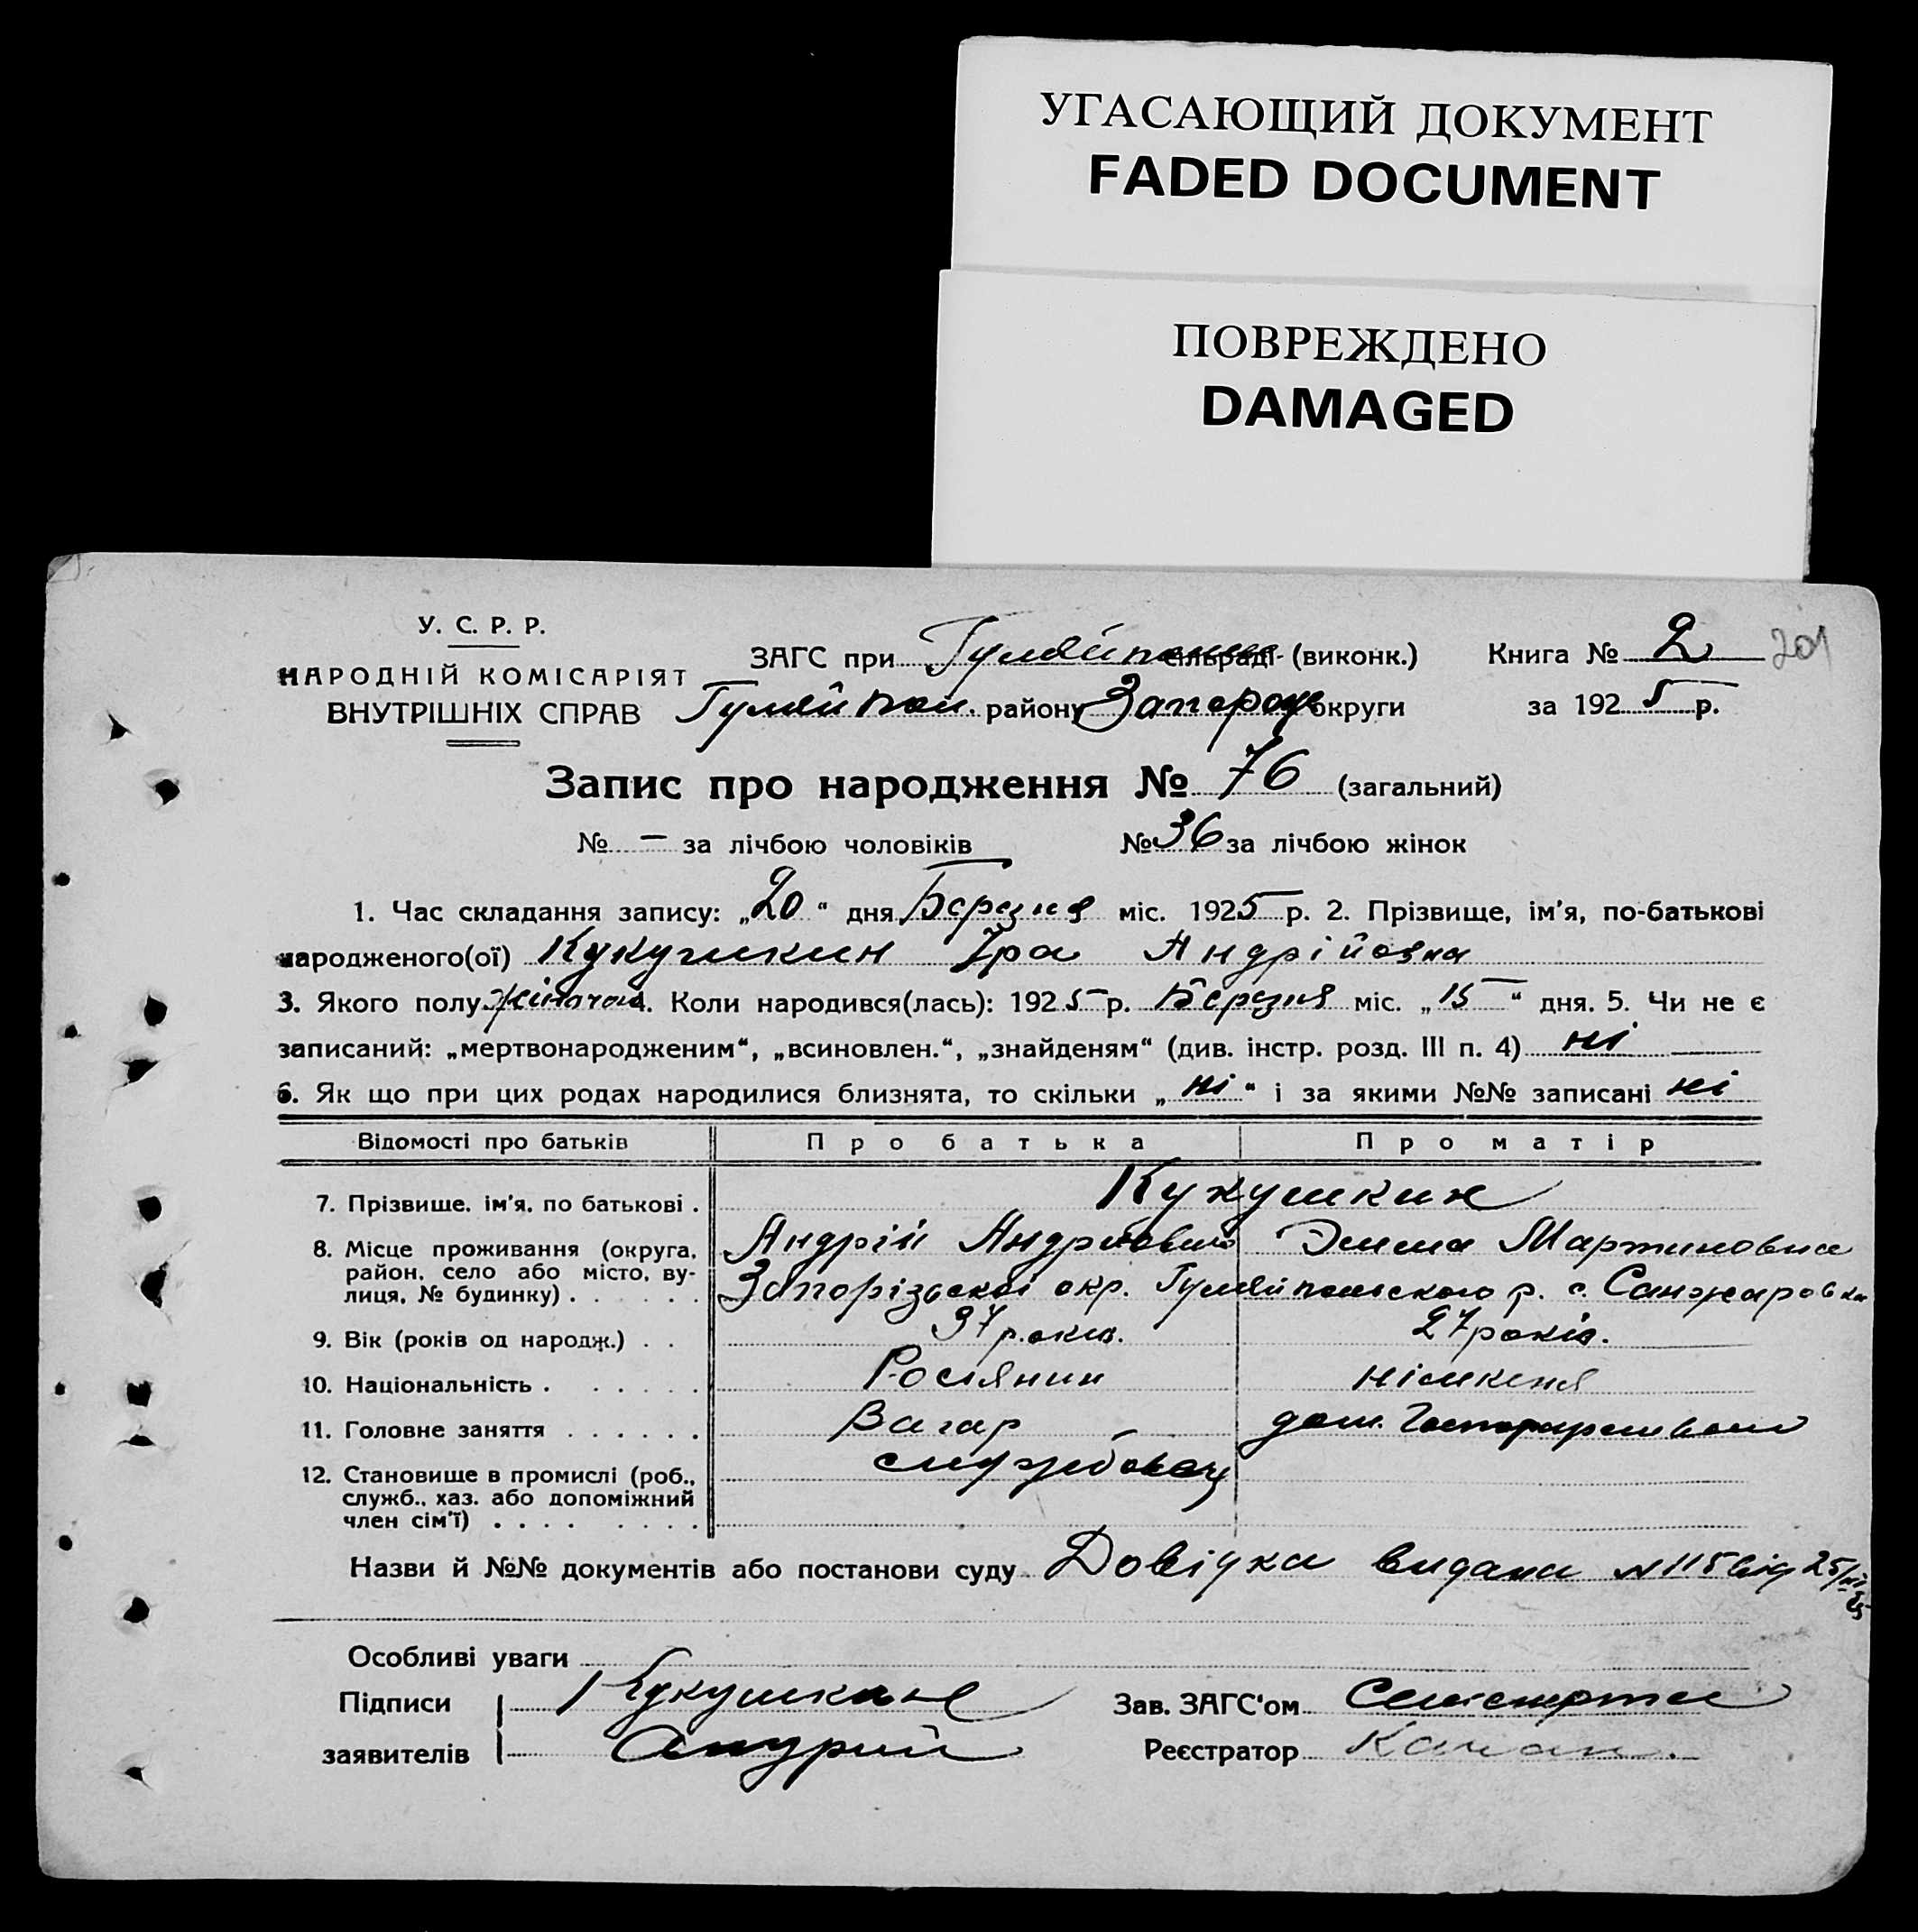 УГАСАЮЩИЙ ДОКУМЕНТ
FADED DOCUMENT
ПОВРЕЖДЕНО
DAMAGED
У. С. Р. Р.
НАРОДНІЙ КОМІСАРІЯТ
ВНУТРІШНІХ СПРАВ
ЗАГС при Гуляйпольск сільраді (виконк.) Книга № 2 201
Гуляйпол. району Запорож округи за 1925 р.
Запис про народження № 76 (загальний)
№ — за лічбою чоловіків № 36 за лічбою жінок
1. Час складання запису: „20“ дня Березня міс. 1925 р. 2. Прізвище, ім'я, по-батькові
народженого(ої) Кукушкин Іра Андрійовна
3. Якого полу жіночої 4. Коли народився(лась): 1925 р. Березня міс. „15“ дня. 5. Чи не є
записаний: „мертвонародженим“, „всиновлен.“, „знайденям“ (див. інстр. розд. III п. 4) ні
6. Як що при цих родах народилися близнята, то скільки „ні“ і за якими №№ записані ні
Відомості про батьків Про батька Про матір
7. Прізвище, ім'я, по батькові . Кукушкин
8. Місце проживання (округа, Андрій Андрійович Эмма Мартиновна
район, село або місто, ву-
лиця, № будинку) . . . . . . Запорізської окр. Гуляйпольского р. с. Санжаровка
9. Вік (років од народж.) . . 37 років. 27 років.
10. Національність . . . . . . Росіянин німкеня
11. Головне заняття . . . . . . Вагар дом. Господарством
12. Становище в промислі (роб., службовец
служб., хаз. або допоміжний
член сім'ї) . . . . . . . .
Назви й №№ документів або постанови суду Довідка видана №115 від 25/III 25
Особливі уваги
Підписи Кукушкин Зав. ЗАГС'ом
заявителів Андрий Реєстратор Качан.